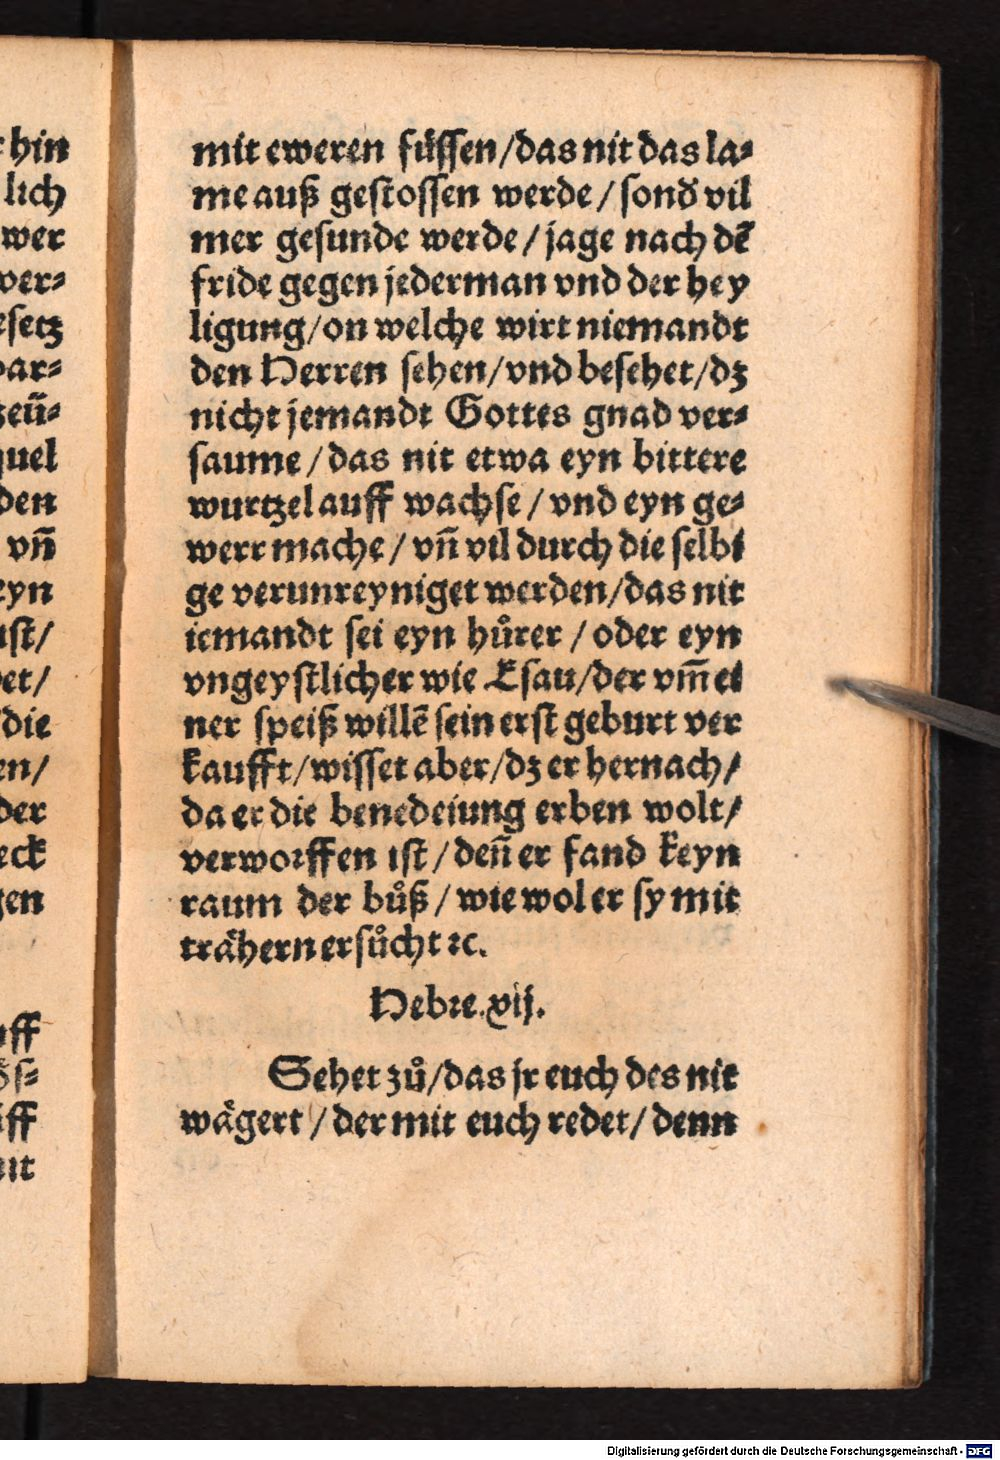 mit eweren füssen/das nit das la⸗
me auß gestossen werde/sond̛ vil
mer gesunde werde/jage nach dē
fride gegen jederman vnd der hey
ligung/on welche wirt niemandt
den Herren sehen/vnd besehet/dz
nicht jemandt Gottes gnad ver⸗
saume/das nit etwa eyn bittere
wurtzel auff wachse/vnd eyn ge⸗
werr mache/vn̄ vil durch die selbi
ge verunreyniget werden/das nit
iemandt sei eyn hůrer/oder eyn
vngeystlicher wie Esau/der vm̄ ei
ner speiß willē sein erst geburt ver
kaufft/wisset aber/dz er hernach/
da er die benedeiung erben wolt/
verworffen ist/den̄ er fand keyn
raum der bůß/wie wol er sy mit
trähern ersůcht ꝛc.
Hebre.xij.
Sehet zů/das jr euch des nit
wägert/der mit euch redet/denn
hin
lich
wer
ver⸗
esetz
par⸗
zeü⸗
quel
den
vn̄
eyn
ust/
et/
die
en/
der
eck
gen
uff
s⸗
iff
uit
Digitalisierung gefördert durch die Deutsche Forschungsgemeinschaft - DFG